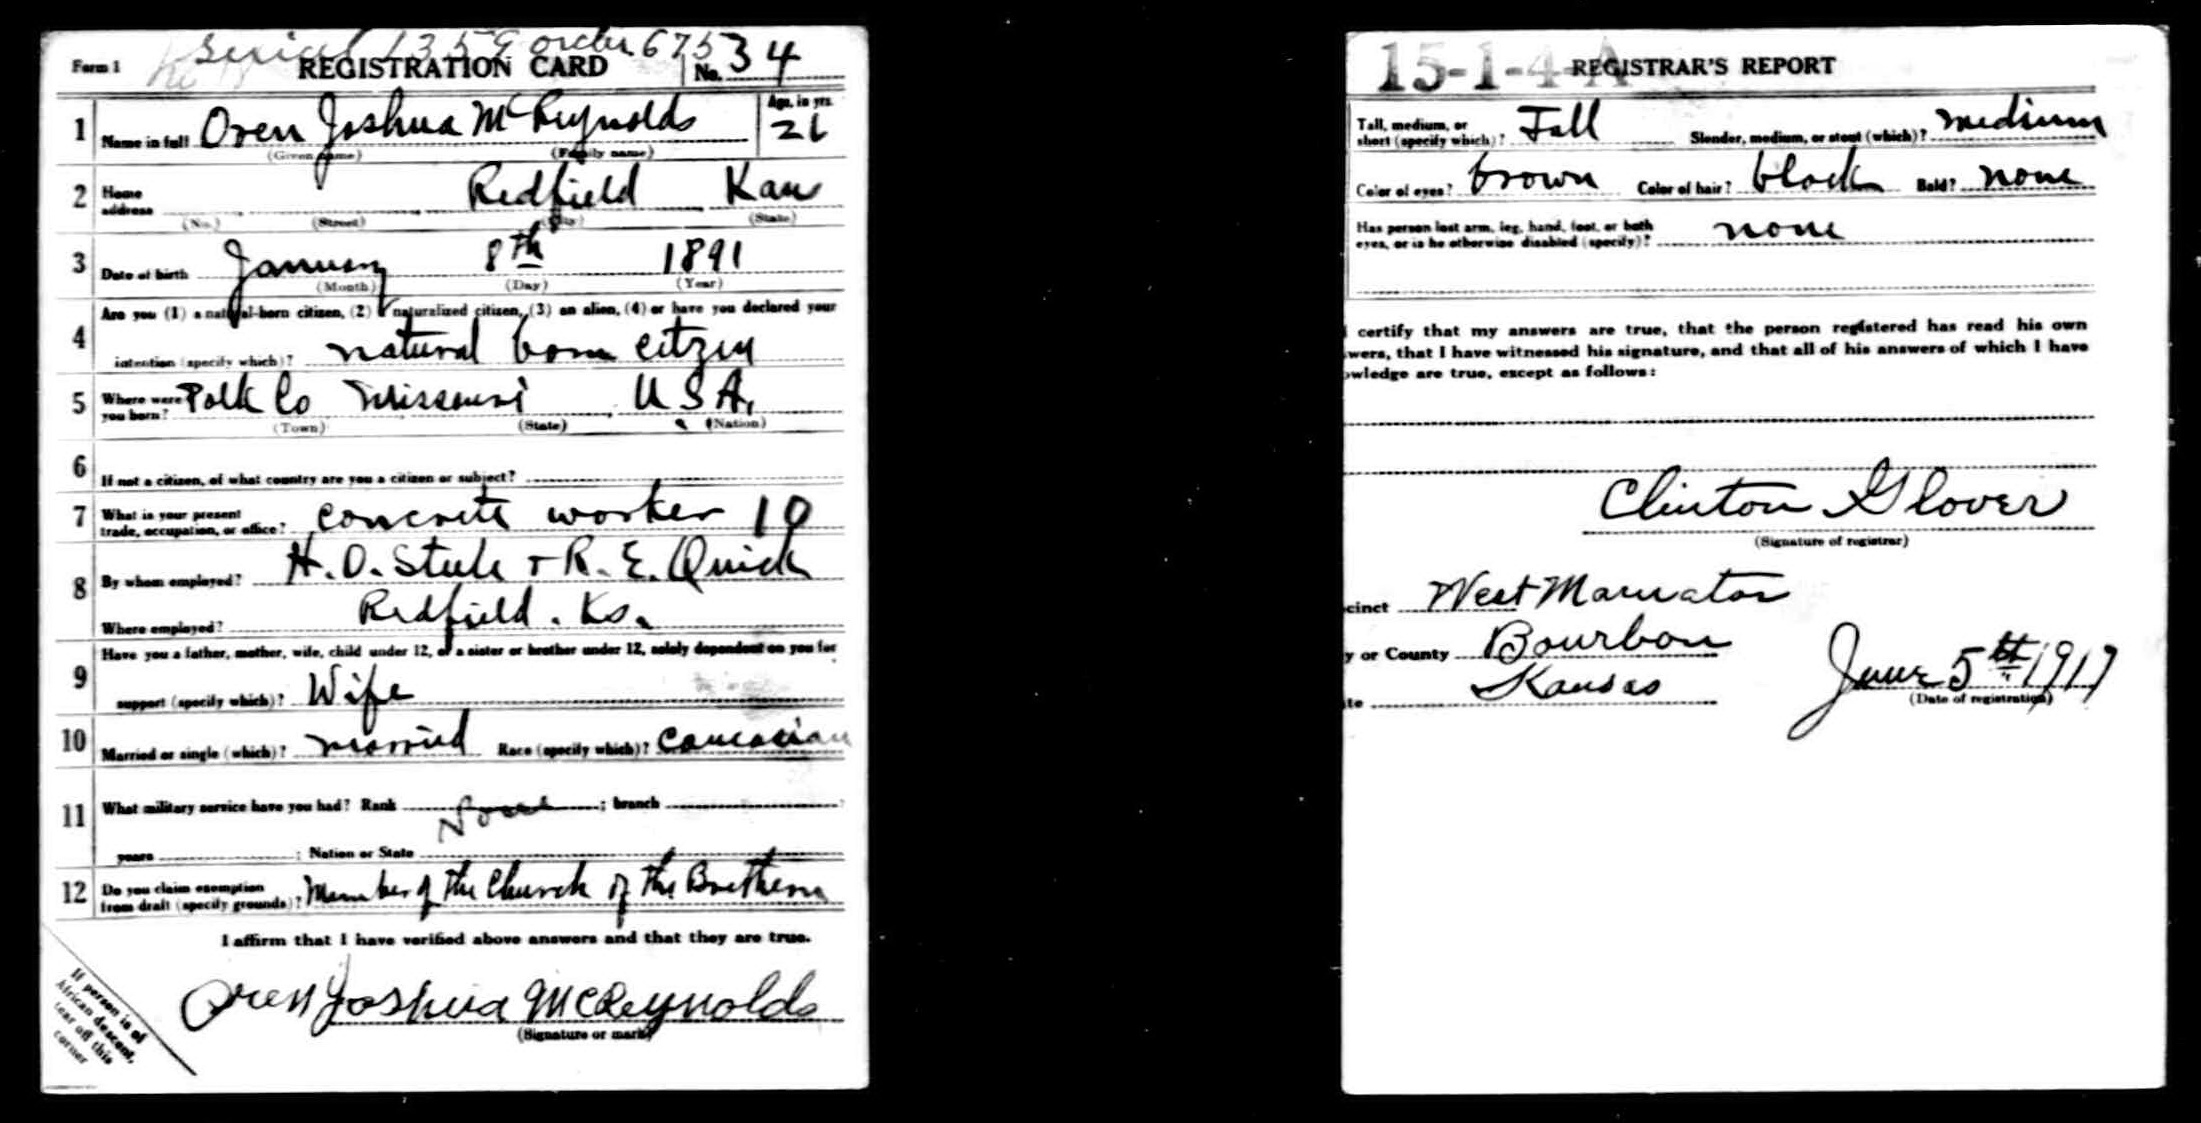 Serial 1359 order 675
Form 1 REGISTRATION CARD No. 34
1 Name in full Oren Joshua McReynolds Age, in yrs. 26
(Given name) (Family name)
2 Home address Redfield Kan
(No.) (Street) (City) (State)
3 Date of birth January 8th 1891
(Month) (Day) (Year)
4 Are you (1) a natural-born citizen, (2) a naturalized citizen, (3) an alien, (4) or have you declared your
intention (specify which)? natural born citzen
5 Where were you born? Polk Co Missouri U S A.
(Town) (State) (Nation)
6 If not a citizen, of what country are you a citizen or subject?
7 What is your present trade, occupation, or office? concrete worker 10
8 By whom employed? H. D. Steele + R. E. Quick
Where employed? Redfield. Ks.
9 Have you a father, mother, wife, child under 12, or a sister or brother under 12, solely dependent on you for
support (specify which)? Wife
10 Married or single (which)? married Race (specify which)? Caucasian
11 What military service have you had? Rank None ; branch
years ; Nation or State
12 Do you claim exemption from draft (specify grounds)? Member of the Church of the Brethern
I affirm that I have verified above answers and that they are true.
Oren Joshua McReynolds
(Signature or mark)
If person is of
African descent,
tear off this
corner
15-1-4-A REGISTRAR'S REPORT
Tall, medium, or short (specify which)? Tall Slender, medium, or stout (which)? medium
Color of eyes? brown Color of hair? black Bald? none
Has person lost arm, leg, hand, foot, or both
eyes, or is he otherwise disabled (specify)? none
I certify that my answers are true, that the person registered has read his own
wers, that I have witnessed his signature, and that all of his answers of which I have
owledge are true, except as follows:
Clinton Glover
(Signature of registrar)
cinct West Marmaton
y or County Bourbon
te Kansas
June 5th 1917
(Date of registration)